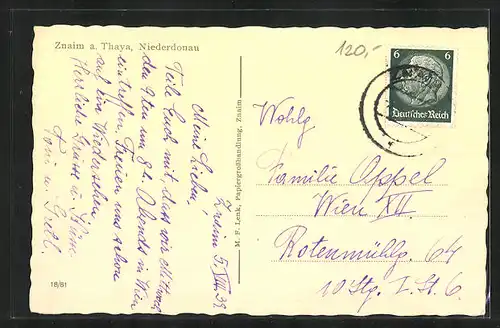 Znaim a. Thaya, Niederdonau
120,-
6 6
Deutsches Reich
Znaim 5. VIII. 39.
Meine Lieben!
Teile Euch mit, dass wir Mittwoch
den 9ten um 8 h Abends in Wien
eintreffen. Freuen uns schon
auf ein Wiedersehen
Herzliche Grüsse u. Küsse
Toni u. Gretl.
18/81
M. F. Lenk, Papiergroßhandlung, Znaim
Wohlg
Familie Appel
Wien XII
Rotenmühlg. 64
10 Stg. I. St. 6.